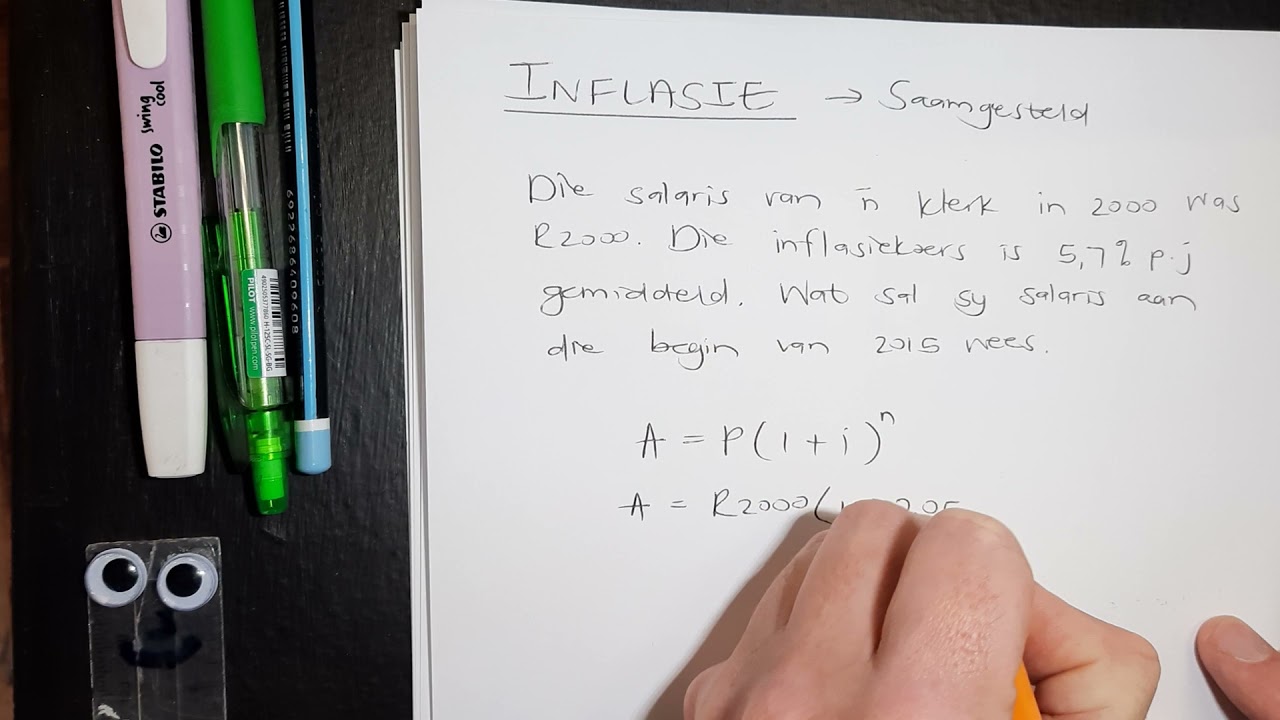 INFLASIE → Saamgesteld
Die salaris van 'n klerk in 2000 was
R2000. Die inflasiekoers is 5,7% p.j
gemiddeld. Wat sal sy salaris aan
die begin van 2015 wees.
A = P(1 + i)ⁿ
A = R2000(
STABILO swing cool
PILOT www.pilotpen.com
H-125C-SL-SG-BG
6922686409608